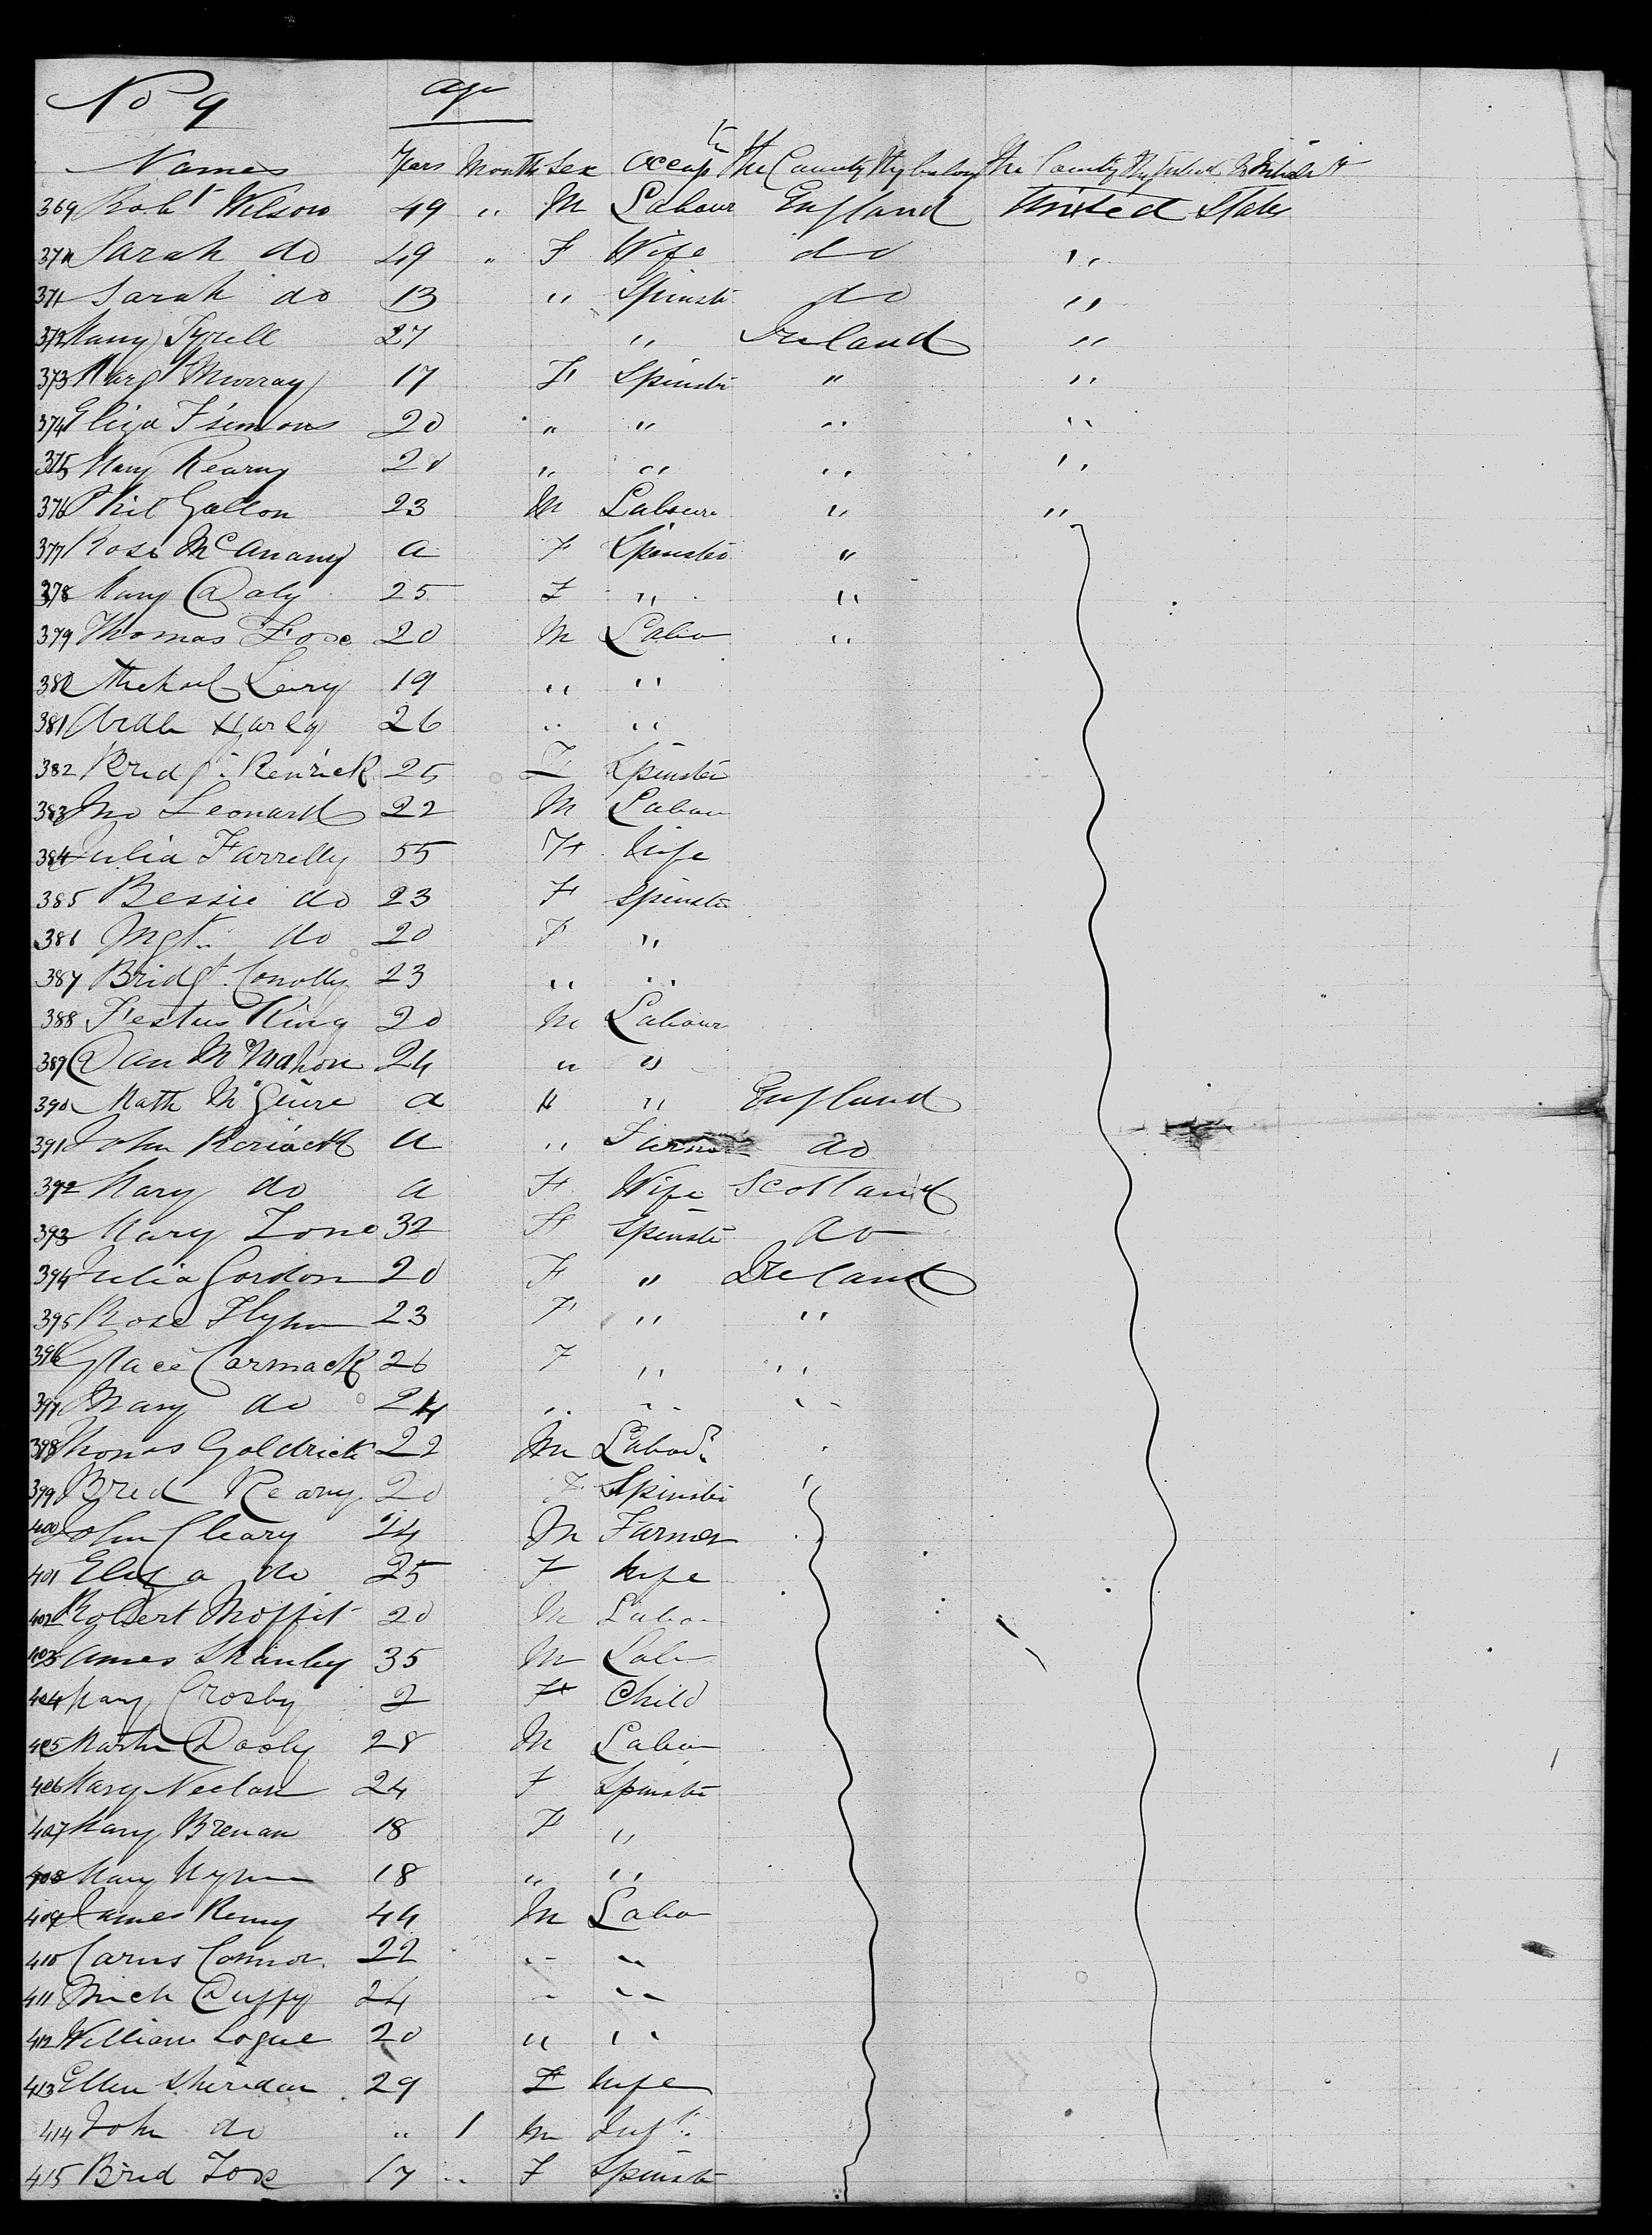 No 9 age
Names Years Months Sex Occupn The County they belong The County they intend to Inhabit
369 Robt Wilson 49 " M Labour England United States
370 Sarah do 49 " F Wife do "
371 Sarah do 13 " Spinstr do "
372 Mary Tyrell 27 " Ireland "
373 Margt Murray 17 F Spinstr " "
374 Eliza Fsimons 20 " " " "
375 Mary Kearny 20 " " " "
376 Phil Gallon 23 M Labour " "
377 Rose McAnany a F Spinster "
378 Mary Daly 25 F " "
379 Thomas Foxe 20 M Labo "
380 Michael Leary 19 " "
381 Harly 26 " "
382 Bridgt Kenrick 25 F Spinster
383 Jno Leonard 22 M Labou
384 Julia Farrelly 55 F Wife
385 Bessie do 23 F Spinster
386 Mgt. do 20 F "
387 Bridgt. Conolly 23 " "
388 Festus King 20 M Labour
389 Dan McMahon 24 " "
390 Math McGuire a " " England
391 John a " Farmer do
392 Mary do a F Wife Scotland
393 Mary Lone 32 F Spinstr do
394 Julia Gordon 20 F " Ireland
395 Rose Flynn 23 F " "
396 Grace Carmack 26 F " "
397 Mary do 24 " " "
398 Thomas Goldrick 22 M Labour
399 Bred Keary 20 F Spinster "
400 John Cleary 24 M Farmer
401 Eliza do 25 F Wife
402 Robert Moffit 20 M Labou
403 James Stanley 35 M Labr
404 Mary Crosby 2 F Child
405 Martin Dooly 28 M Labou
406 Mary Neelan 24 F Spinster
407 Mary Brenan 18 F "
408 Mary 18 " "
409 James Kenny 44 M Labo
410 Connor 22 " "
411 Mich Duffy 24 " "
412 William Logue 20 " "
413 Ellen Sheridan 29 F Wife
414 John do " 1 M Inft.
415 Brid Fox 17 " F Spinstr